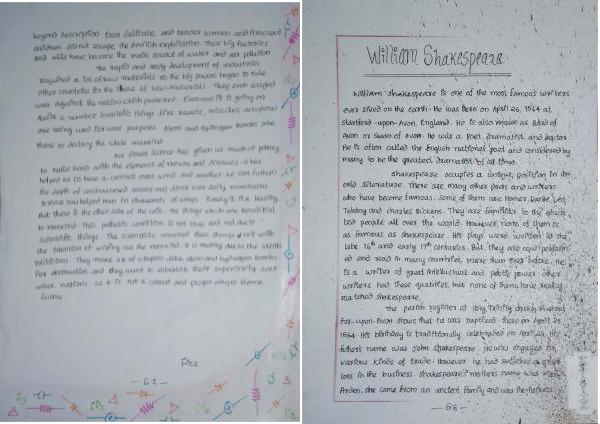 beyond description. Even delicate and tender women and innocent
children did not escape the devilish exploitation. These big factories
and mills have become the main source of water and air pollution
The rapid and early development of industries
required a lot of raw materials so the big powers began to rule
other countries for the sake of raw-materials. They even waged
war against the nation
quite a number scientific things like rockets, missiles, aeroplanes
are being used for war purposes. Atom and hydrogen bombs are
there to destroy the whole mankind
No doubt science has given us much of
to battle hand with the elements of nature and
helped us to have a control over wind and weather we can fathom
the depth of oceans and
Science has helped man in thousands of ways.
But there is the other side of the coin. The things which are beneficial
to mankind
scientific things. The scientists invented these things not with
the intention of wiping out the mankind. It is mainly due to the selfish
politicians. They make use of weapons like atom and hydrogen bombs
for destruction and they want to establish their superiority over
weak nations. so it is not a correct and proper way to blame
Science.
- 67 -
William Shakespeare
William Shakespeare is one of the most famous writers
ever lived on the earth. He was born on April 26, 1564 at
Stratford-upon-Avon, England. He is also known as Bard of
Avon or Swan of Avon. He was a poet, dramatist and actor.
He is often called the English national poet and considered by
many to be the greatest dramatist of all time.
Shakespeare occupies a unique position in
world literature. There are many other poets and writers
who have become famous. Some of them are Homer, Dante, Leo
Tolstoy and Charles Dickens. They are familiar to the educa
ted people all over the world. However, none of them is
as famous as Shakespeare. His plays were written in the
late 16th and early 17th centuries. But, they are now perform
ed and read in many countries, more than ever before. He
is a writer of great intellectual and poetic power. Other
writers had these qualities, but none of them have really
matched Shakespeare.
The parish register of Holy Trinity church
-upon-Avon shows that he was baptized there on April 26,
1564. His birthday is traditionally celebrated on April 23. His
father's name was John Shakespeare. He was engaged in
various kinds of trade. However, he had suffered a great
loss in the business. Shakespeare's mother's name was Mary
Arden. She came from an ancient family and was the
- 68 -